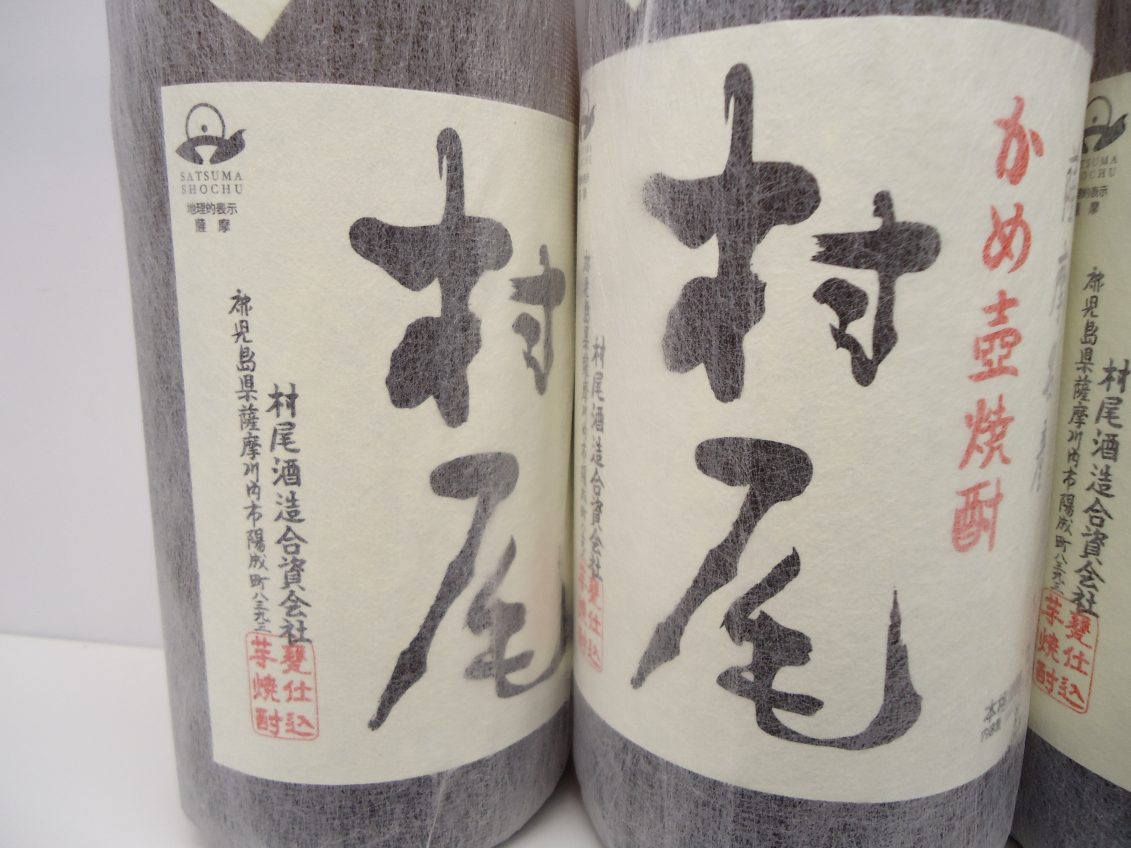 SATSUMA
SHOCHU
地理的表示
薩摩
鹿児島県薩摩川内市陽成町八三九三
村尾酒造合資会社
甕仕込
芋焼酎
村尾
かめ壺焼酎
村尾
村尾酒造合資会社
甕仕込
SATSUMA
SHOCHU
薩摩
鹿児島県薩摩川内市陽成町八三九三
村尾酒造合資会社
甕仕込
芋焼酎